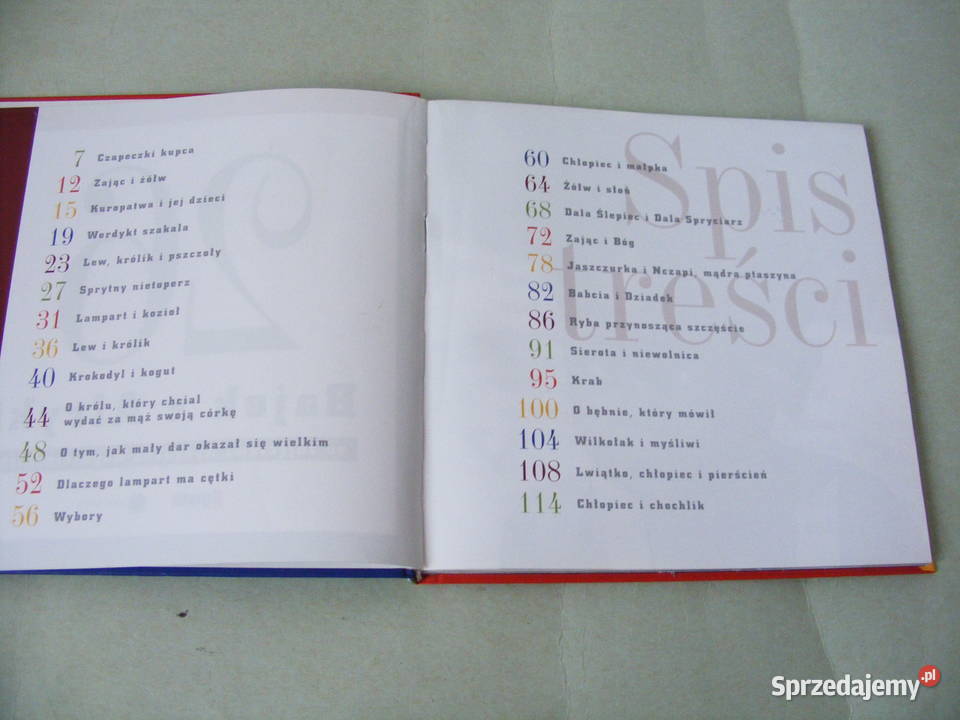 7 Czapeczki kupca
12 Zając i żółw
15 Kuropatwa i jej dzieci
19 Werdykt szakala
23 Lew, królik i pszczoły
27 Sprytny nietoperz
31 Lampart i kozioł
36 Lew i królik
40 Krokodyl i kogut
44 O królu, który chciał
wydać za mąż swoją córkę
48 O tym, jak mały dar okazał się wielkim
52 Dlaczego lampart ma cętki
56 Wybory
Spis
treści
60 Chłopiec i małpka
64 Żółw i słoń
68 Dala Ślepiec i Dala Spryciarz
72 Zając i Bóg
78 Jaszczurka i Nczapi, mądra ptaszyna
82 Babcia i Dziadek
86 Ryba przynosząca szczęście
91 Sierota i niewolnica
95 Krab
100 O bębnie, który mówił
104 Wilkołak i myśliwi
108 Lwiątko, chłopiec i pierścień
114 Chłopiec i chochlik
Sprzedajemy.pl